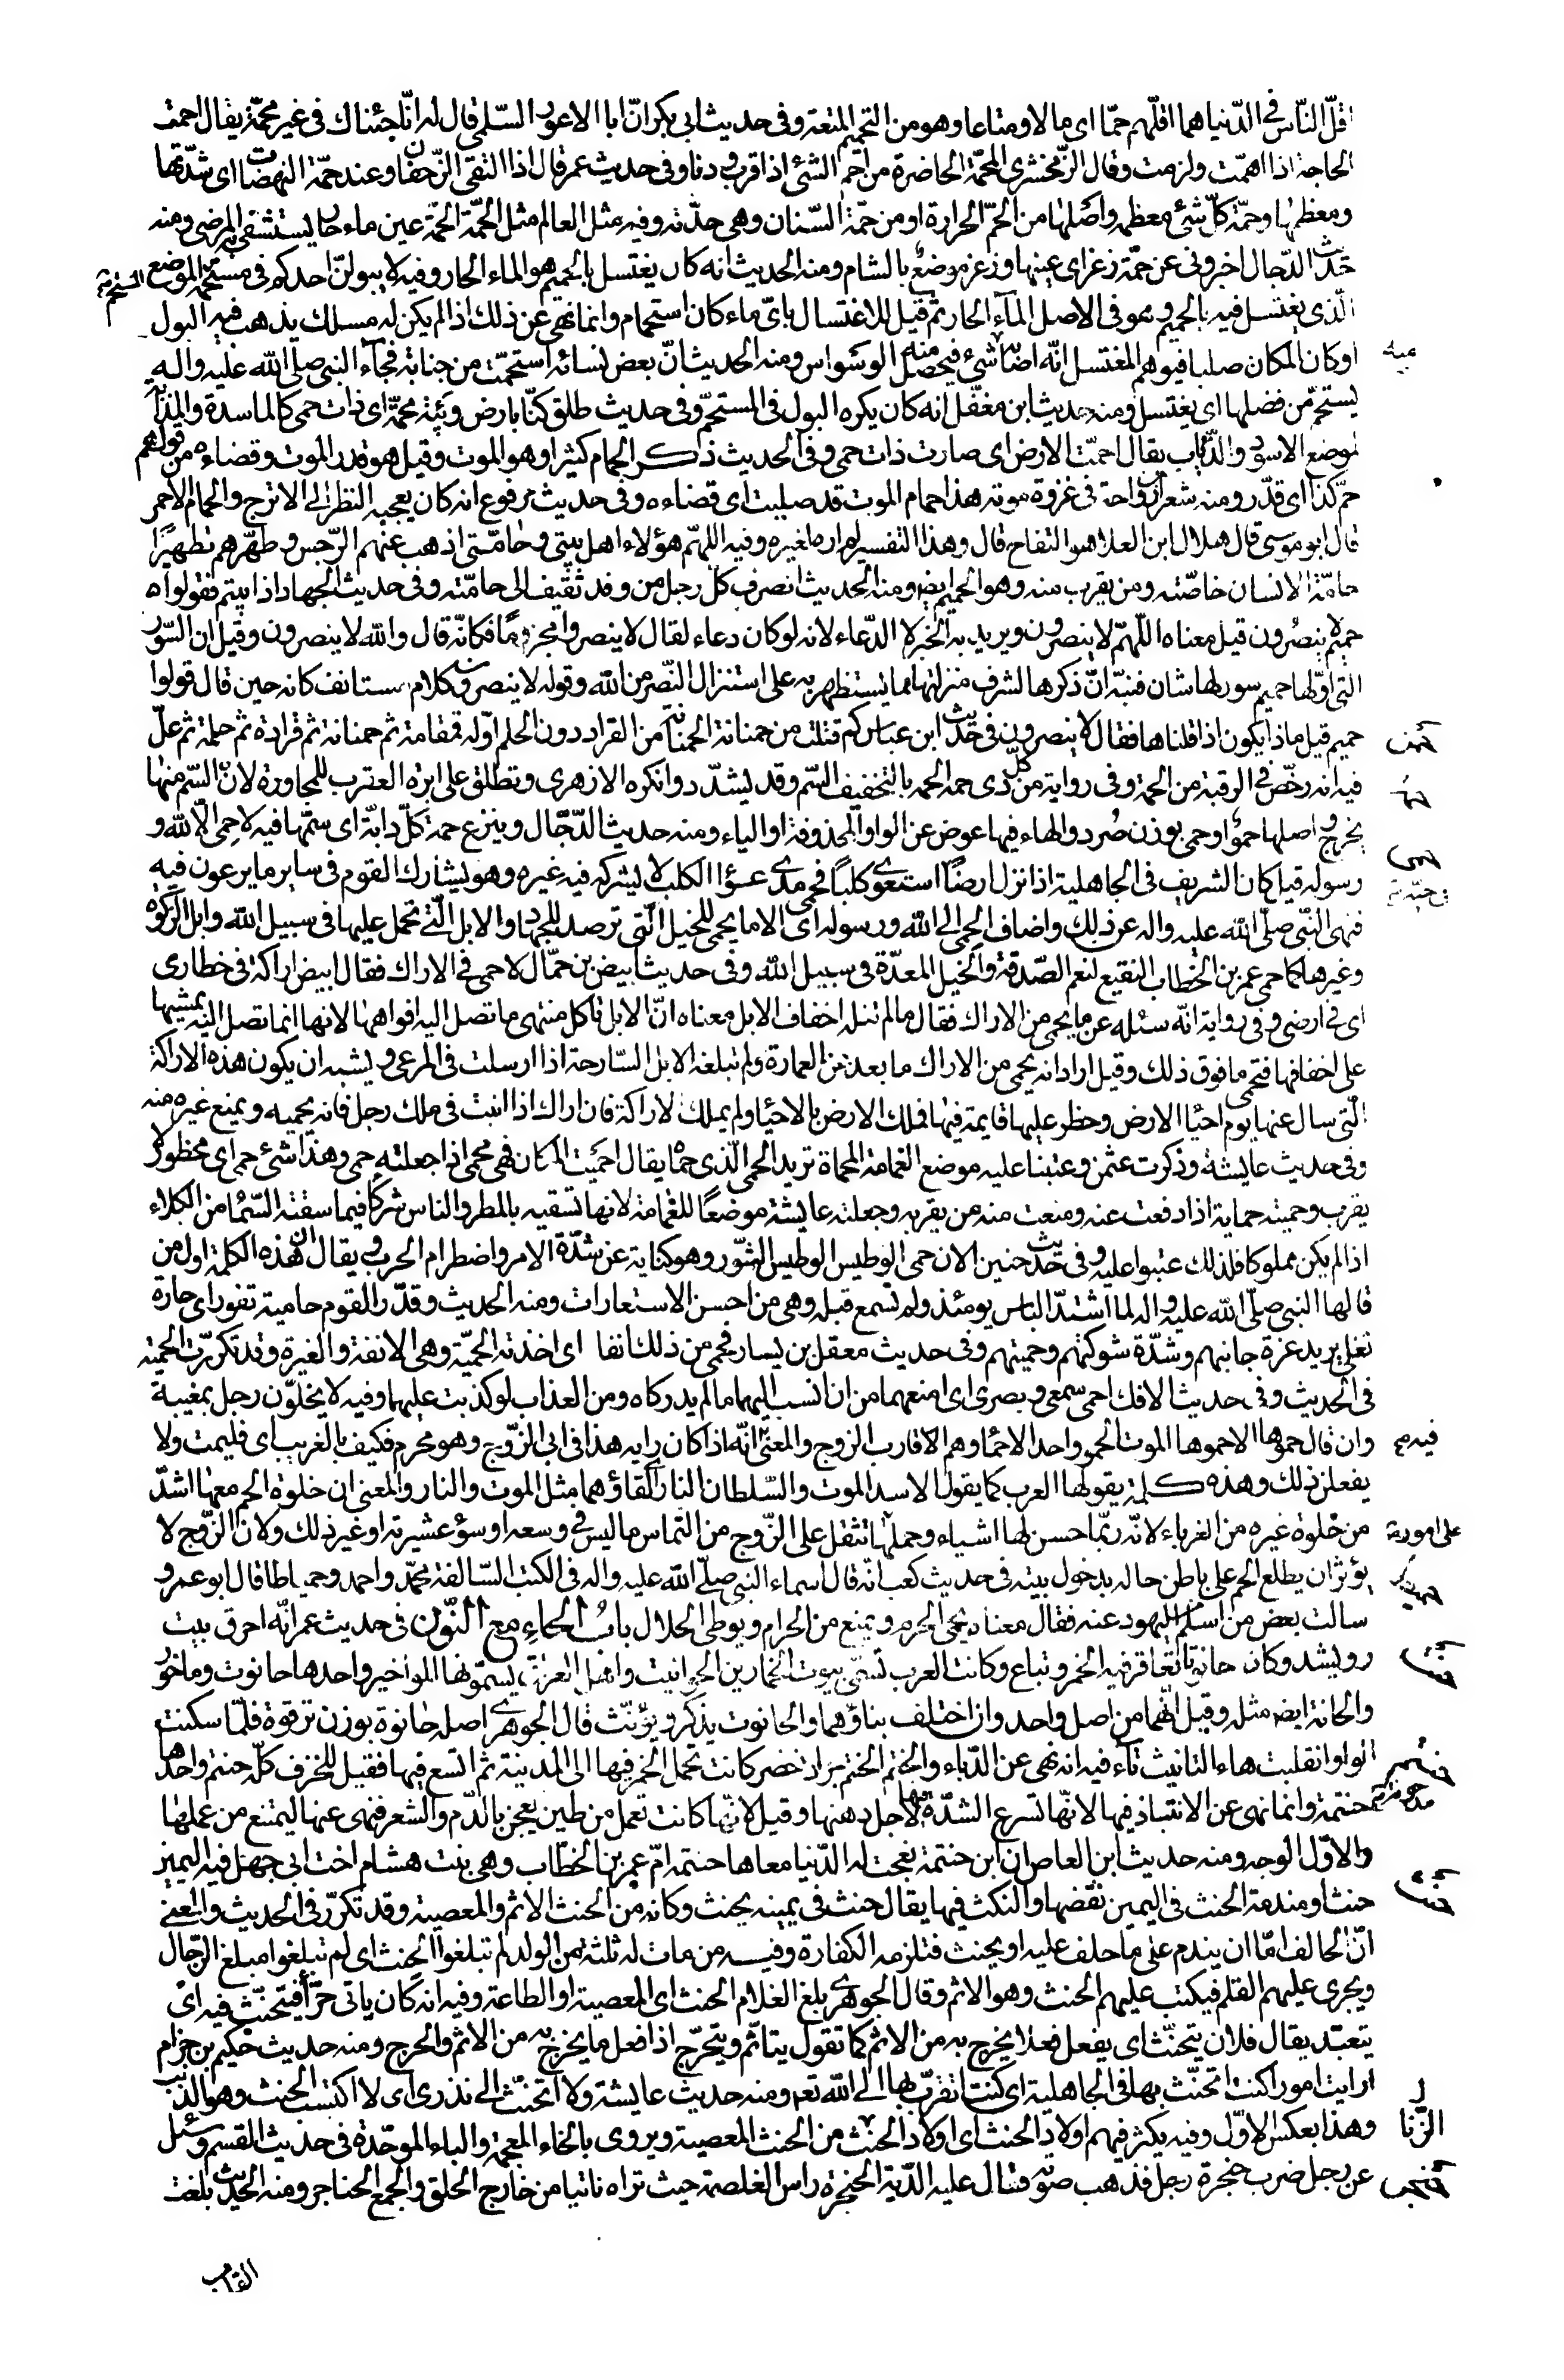 اقلّ النّاس فى الدّنيا هما اقلّهم حمّا اى مالا ومتاعا وهو من التحميم المتعة وفى حديث ابى بكر انّ ابا الاعور السّلمى قال له انّا جئناك فى غير محمّة يقال احمت
الحاجة اذا اهمّت ولزمت وقال الزّمخشرى المحمّة الحاضرة من احمّ الشئ اذا قرب ودنا وفى حديث عمر قال اذا التقى الزّحفان وعند حمّة النهضات اى شدّتها
ومعظمها وحمّة كلّ شئ معظمه واصلها من الحمّ الحرارة او من حمّة السّنان وهى حدّته وفيه مثل العالم مثل الحمّة الحمّة عين ماء حار يستشفى بها المرضى ومنه
حديث الدّجال اخبرونى عن حمّة زغر اى عينها وزغر موضع بالشام ومنه الحديث انه كان يغتسل بالحميم هو الماء الحار وفيه لا يبولنّ احدكم فى مستحمّه الموضع
الّذى يغتسل فيه بالحميم وهو فى الاصل المآء الحار ثم قيل للاغتسال باىّ ماء كان استحمام وانما نهى عن ذلك اذا لم يكن له مسلك يذهب فيه البول
او كان المكان صلبا فيوهم المغتسل انّه اصابه شئ فيحصل منه الوسواس ومنه الحديث انّ بعض نسائه استحمّت من جنابة فجآء النبى صلى الله عليه واله
يستحمّ من فضلها اى يغتسل ومنه حديث ابن مغفّل انه كان يكره البول فى المستحمّ وفى حديث طلق كنّا بارض وبئة محمّة اى ذات حمى كالماسدة والمذابة
لموضع الاسود والذّياب يقال احمّت الارض اى صارت ذات حمى وفى الحديث ذكر الحمام كثيرا وهو الموت وقيل هو قدر الموت وقضاءه من قولهم
حمّ كذا اى قدّر ومنه شعر ابن رواحة فى غزوة موته هذا حمام الموت قد صليت اى قضاءه وفى حديث مرفوع انه كان يعجبه النظر الى الاترج والحمام الاحمر
قال ابو موسى قال هلال ابن العلا هو التفاح قال وهذا التفسير لم اره لغيره وفيه اللهمّ هؤلاء اهل بيتى وحامّتى اذهب عنهم الرّجس وطهّرهم تطهيرًا
حامّة الانسان خاصّته ومن يقرب منه وهو الحميم ايضا ومنه الحديث انصرف كلّ رجل من وفد ثقيف الى حامّته وفى حديث الجهاد اذا بيتم فقولوا ه
حميم لا ينصرون قيل معناه اللّهمّ لا ينصرون ويريد به الخبر لا الدّعاء لانه لو كان دعاء لقال لا ينصروا مجزوما فكانّه قال والله لا ينصرون وقيل ان السّور
التى اوّلها حميم سور لها شان فنبّه انّ ذكرها لشرف منزلتها مما يستظهر به على استنزال النّصر من الله وقوله لا ينصرون كلام مستانف كانه حين قال قولوا
حميم قيل ماذا يكون اذا قلناها فقال لا ينصرون فى حديث ابن عباس كم قتلت من حمنانة الحمنانة من القراد دون الحلم اوّله قمقامة ثم حمنانة ثم قرادة ثم حلمة ثم علّ
فيه انه رخّص فى الرقية من الحمة وفى رواية من كلّ ذى حمة الحمه بالتخفيف السّم وقد يشدّد وانكره الازهرى وتطلق على ابرة العقرب للمجاورة لانّ السّم منها
يخرج واصلها حمو او حمى بوزن صُرد والهاء فيها عوض عن الواو المحذوفة او الياء ومنه حديث الدّجّال وينزع حمة كلّ دابّة اى سمّها فيه لا حمى الّا لله و
رسوله قيل كان الشريف فى الجاهلية اذا نزل ارضًا استعوى كلبًا فحمى مدى عؤا الكلب لا يشركه فيه غيره وهو يشارك القوم فى ساير ما يرعون فيه
فنهى النّبى صلّى الله عليه واله عن ذلك واضاف الحمى الى الله ورسوله اى الا ما يحمى للخيل الّتى ترصد للجهاد والابل الّتى تحمل عليها فى سبيل الله وابل الزكوة
وغيرها كما حمى عمر بن الخطاب النقيع لنعم الصّدقة والخيل المعدّة فى سبيل الله وفى حديث ابيض بن حمّال لا حمى فى الاراك فقال ابيض اراكة فى خطارى
اى فى ارضى وفى رواية انّه سئله عن ما يحمى من الاراك فقال ما لم تنله اخفاف الابل معناه انّ الابل تاكل منتهى ما تصل اليه افواهها لانها انما تصل اليه بمشيها
على اخفافها فتحمى ما فوق ذلك وقيل اراد انه يحمى من الاراك ما بعد عن العمارة ولم تبلغه الابل السّارحة اذا ارسلت فى المرعى ويشبه ان يكون هذه الاراكة
الّتى سال عنها يوم احيّا الارض وحظر عليها قايمة فيها فملك الارض بالاحيّا ولم يملك الاراكة فان اراك اذا انبت فى ملك رجل فانه يحميه ويمنع غيره منه
وفى حديث عايشة وذكرت عثمن وعتبنا عليه موضع الغمامة المحماة تريد الحمى الّذى حماه يقال احميت المكان فهى محمى اذا جعلته حمى وهذا شئ حمى اى محظور لا
يقرب وحميته حماية اذا دفعت عنه ومنعت منه من يقربه وجعلته عايشة موضعًا للغمامة لانها تسقيه بالمطر والناس شركا فيما سقته السّمآ من الكلاء
اذا لم يكن مملوكا فلذلك عتبوا عليه وفى حديث حنين الان حمى الوطيس الوطيس التنّور وهو كناية عن شدّة الامر واضطرام الحرب ويقال ان هذه الكلمة اول من
قالها النبى صلّى الله عليه واله لما اشتدّ الناس يومئذ ولم تسمع قبله وهى من احسن الاستعارات ومنه الحديث وقدر القوم حامية تفور اى حارة
تغلى يريد عزة جانبهم وشدّة شوكتهم وحميتهم وفى حديث معقل بن يسار فحمى من ذلك انفا اى اخذته الحميّة وهى الانفة والغيرة وقد تكررت الحمية
فى الحديث وفى حديث الافك احمى سمعى وبصرى اى امنعهما من ان انسب اليهما ما لم يدركاه ومن العذاب لو كذبت عليهما وفيه لا يخلوّن رجل بمغيبة
وان قال حموها الا حموها الموت الحمو واحد الاحمّا وهم الاقارب الزوج والمعنى انّه اذا كان رايه هذا فى ابى الزّوج وهو محرم فكيف بالغريب اى فليمت ولا
يفعلن ذلك وهذه كلمة يقولها العرب كما يقولوا الاسد الموت والسّلطان النار اى لقاؤهما مثل الموت والنار والمعنى ان خلوة الحم معها اشدّ
من خلوة غيره من الغرباء لانّه ربّما حسن لها اشياء وحملها تثقل على الزّوج من التماس ما ليس فى وسعه او سؤ عشيرته او غير ذلك ولانّ الزّوج لا
يؤثر ان يطلع الحم على باطن حاله بدخول بيته فى حديث كعب انّه قال اسماء النبى صلّى الله عليه واله فى الكتب السّالفة محمّد واحمد وحمياطا قال ابو عمرو
سالت بعض من اسلم من اليهود عنه فقال معناه يحمى الحرم ويمنع من الحرام ويوطى الحلال باب الحاءِ مع النّون فى حديث عمر انّه احرق بيت
رويشد وكان حانوتا تعاقر فيه الخمر وتباع وكانت العرب تسمّى بيوت الخمارين الحوانيت واهل العراق يسمّونها المواخير واحدها حانوت وماخور
والحانة ايضا مثله وقيل انّهما من اصل واحد وان اختلف بناؤهما والحانوت يذكر ويؤنّث قال الجوهرى اصله حانوة بوزن ترقوة فلمّا سكنت
الواو انقلبت هاء التانيث تآء فيه انه نهى عن الدّباء والحنتم الحنتم جرار خضر كانت تحمل الخمر فيها الى المدينة ثم اتسع فيها فقيل للخزف كلّه حنتم واحدها
حنتمة وانما نهى عن الانتباذ فيها لانّها تسرع الشدّة فيها لاجل دهنها وقيل لانّها كانت تعمل من طين يعجن بالدّم والشعر فنهى عنها ليمتنع من عملها
والاوّل الوجه ومنه حديث ابن العاص ان ابن حنتمة بعجت له الدّنيا معاها حنتمه امّ عمر بن الخطّاب وهى بنت هشام اخت ابى جهل فيه اليمين
حنث او مندمة الحنث فى اليمين نقضها والنكث فيها يقال حنث فى يمينه يحنث وكانه من الحنث الاثم والمعصية وقد تكرّر فى الحديث والمعنى
انّ الحالف امّا ان يندم على ما حلف عليه او يحنث فتلزمه الكفارة وفيه من مات له ثلثة من الولد لم تبلغوا الحِنث اى لم تبلغوا مبلغ الرّجال
ويجرى عليهم القلم فيكتب عليهم الحنث وهو الاثم وقال الجوهرى بلغ الغلام الحنث اى المعصية او الطاعة وفيه انه كان ياتى حرّا فيتحنّث فيه اى
يتعبّد يقال فلان يتحنّث اى يفعل فعلا يخرج به من الاثم كما تقول يتاثّم ويتحرّج اذا فعل ما يخرج به من الاثم والحرج ومنه حديث حكيم بن حزام
ارايت امورا كنت اتحنّث بها فى الجاهلية اى كنت اتقرّب بها الى الله تعم ومنه حديث عايشة ولا اتحنّث الى نذرى اى لا اكتسب الحنث وهو الذنب
وهذا بعكس الاوّل وفيه يكثر فيهم اولاد الحنث اى اولاد الحنث من الحنث المعصية ويروى بالخاء المعجمة والباء الموحّدة فى حديث القسم وسئل
الزّنا
عن رجل ضرب حنجرة رجل فذهب صوته فقال عليه الدّية الحنجرة راس الغلصمة حيث تراه ناتيا من خارج الحلق والجمع الحناجر ومنه الحديث بلغت